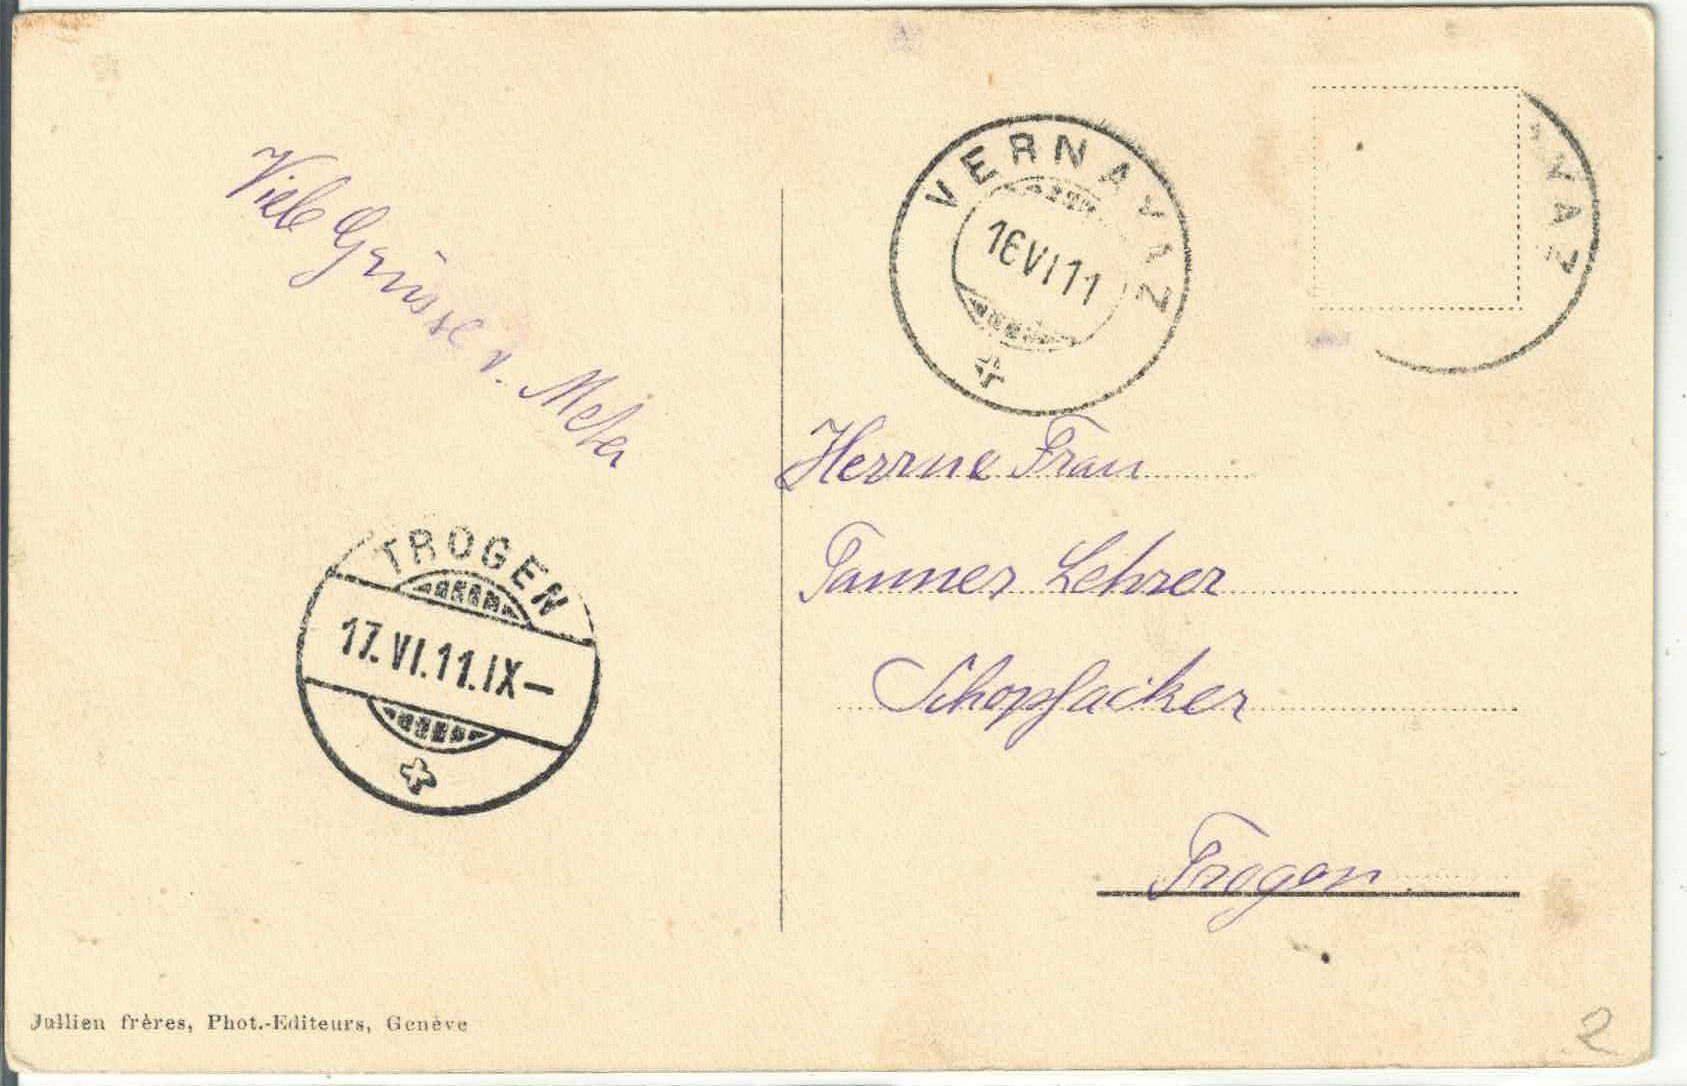 Viele Grüsse v. Meter
VERNAYAZ
16 VI 11
NAZ
Herrne Frau
Tanner Lehrer
Schopfacker
Trogen.
TROGEN
17.VI.11.IX–
Jullien frères, Phot.-Editeurs, Genève
2